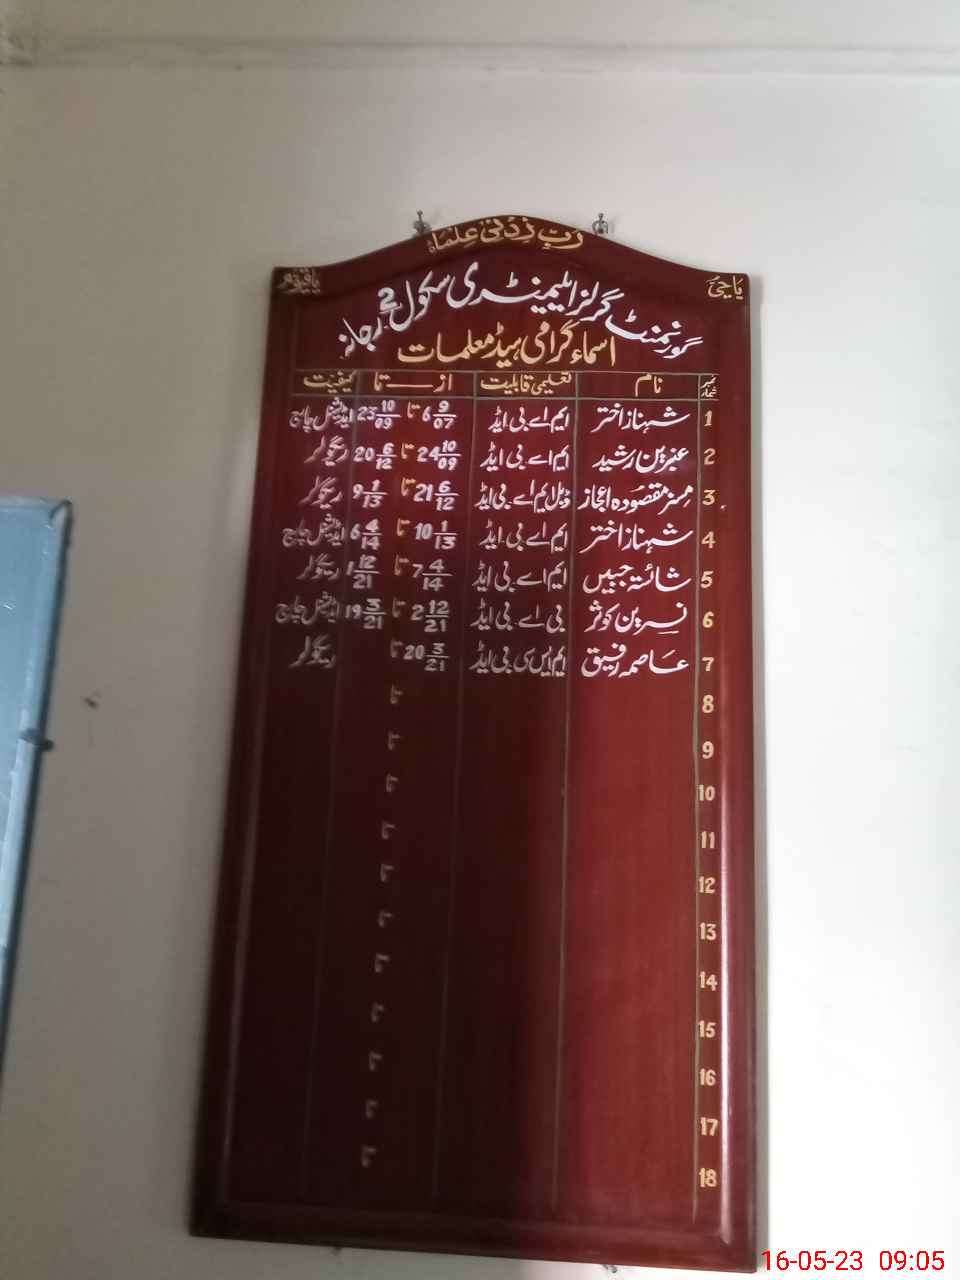 رَبِّ زِدْنِیْ عِلْمًا
یَا حَیُّ یا قیوم
گورنمنٹ گرلز ایلیمینٹری سکول 2 رجانہ
اسماء گرامی ہیڈ معلمات
نمبر شمار نام تعلیمی قابلیت از تا کیفیت
1 شہناز اختر ایم اے بی ایڈ 6 9/07 تا 23 10/09 ایڈیشنل چارج
2 عنبرین رشید ایم اے بی ایڈ 24 10/09 تا 20 6/12 ریگولر
3 مسز مقصودہ اعجاز ڈبل ایم اے بی ایڈ 21 6/12 تا 9 1/13 ریگولر
4 شہناز اختر ایم اے بی ایڈ 10 1/13 تا 6 4/14 ایڈیشنل چارج
5 شائستہ جبیں ایم اے بی ایڈ 7 4/14 تا 1 12/21 ریگولر
6 نسرین کوثر بی اے بی ایڈ 2 12/21 تا 19 3/21 ایڈیشنل چارج
7 عاصمہ رفیق ایم ایس سی بی ایڈ 20 3/21 تا ریگولر
8 تا
9 تا
10 تا
11 تا
12 تا
13 تا
14 تا
15 تا
16 تا
17 تا
18 تا
16-05-23 09:05